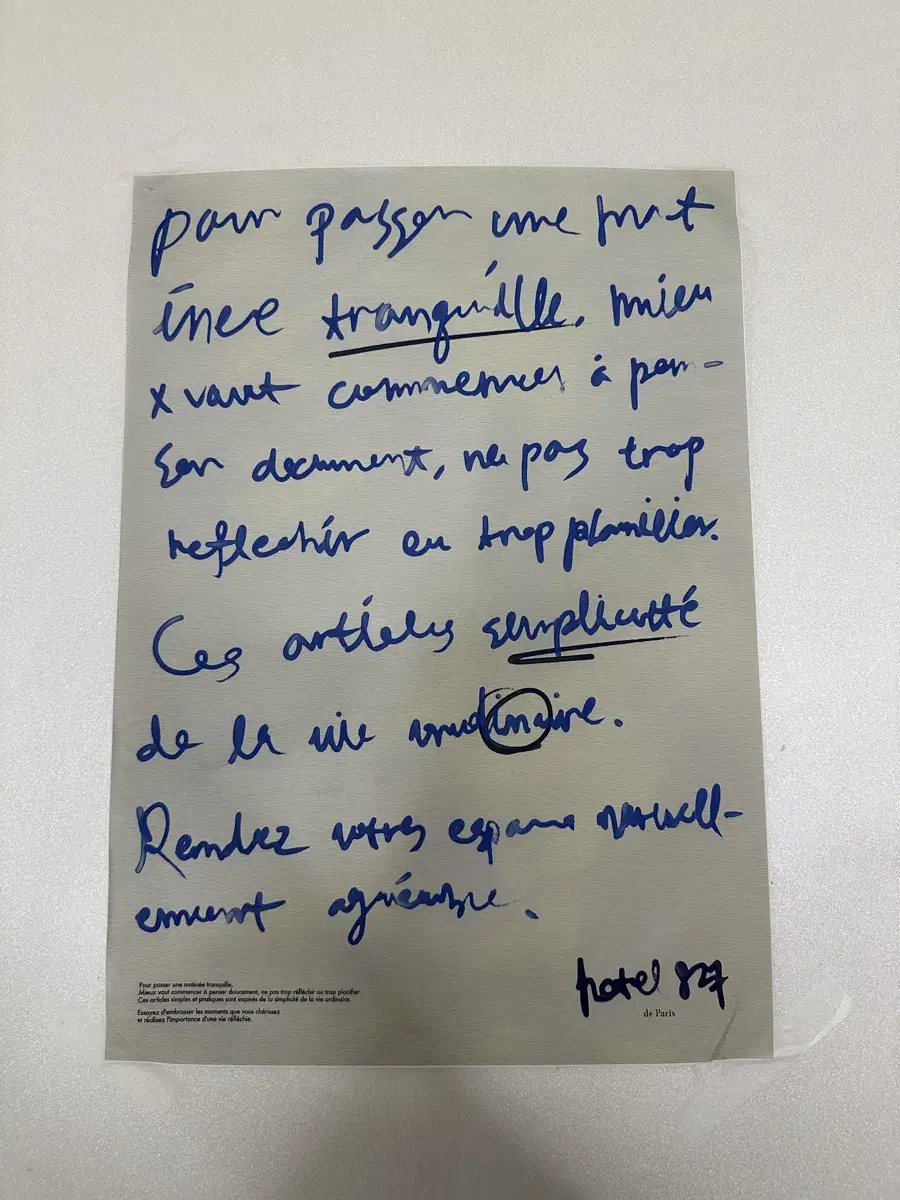 pour passer une mat
inee tranquille. mieu
x vaut commencer à pen-
ser doucment, ne pas trop
reflechir ou trop planifier.
Ces articles simplicité
de la vie ordinaire.
Rendez votres espace naturell-
ement agréable.
hotel 827
de Paris
Pour passer une matinée tranquille,
Mieux vaut commencer à penser doucement, ne pas trop réfléchir ou trop planifier.
Ces articles simples et pratiques sont inspirés de la simplicité de la vie ordinaire.
Essayez d'embrasser les moments que vous chérissez
et réalisez l'importance d'une vie réfléchie.